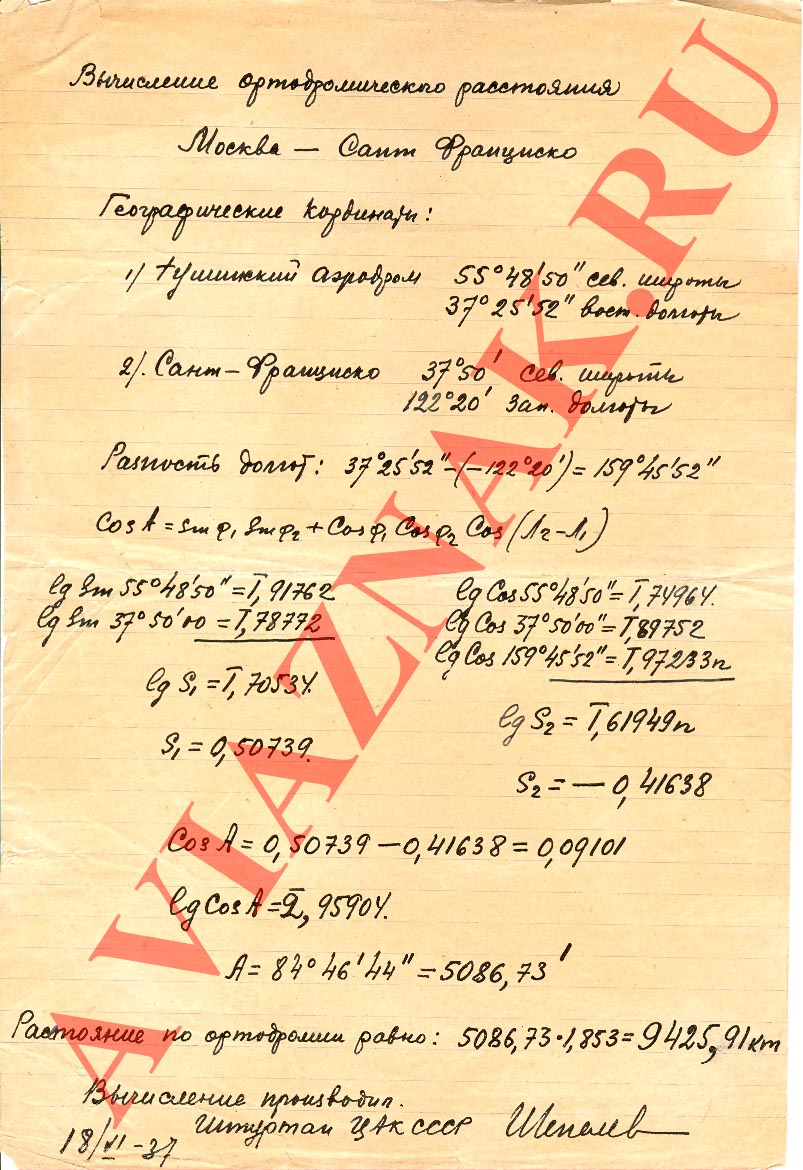 Вычисление ортодромического расстояния
Москва — Сант Франциско
Географические кординаты:
1) Тушинский аэродром 55°48'50" сев. широты
37°25'52" вост. долготы
2). Сант-Франциско 37°50' сев. широты
122°20' Зап. долготы
Разность долгот: 37°25'52"-(-122°20')=159°45'52"
Cos A = Sin φ₁ Sin φ₂ + Cos φ₁ Cos φ₂ Cos (Λ₂-Λ₁)
lg Sin 55°48'50" = Ī,91762
lg Sin 37°50'00 = Ī,78772
lg S₁ = Ī,70534.
S₁ = 0,50739.
lg Cos 55°48'50" = Ī,74964.
lg Cos 37°50'00" = Ī,89752
lg Cos 159°45'52" = Ī,97233n
lg S₂ = Ī,61949n
S₂ = — 0,41638
Cos A = 0,50739 — 0,41638 = 0,09101
lg Cos A = 2̄,95904.
A = 84°46'44" = 5086,73'
Растояние по ортодромии равно: 5086,73·1,853=9425,91 км
Вычисление производил.
Штурман ЦАК СССР Шепелев
18/VI-37
AVIAZNAK.RU